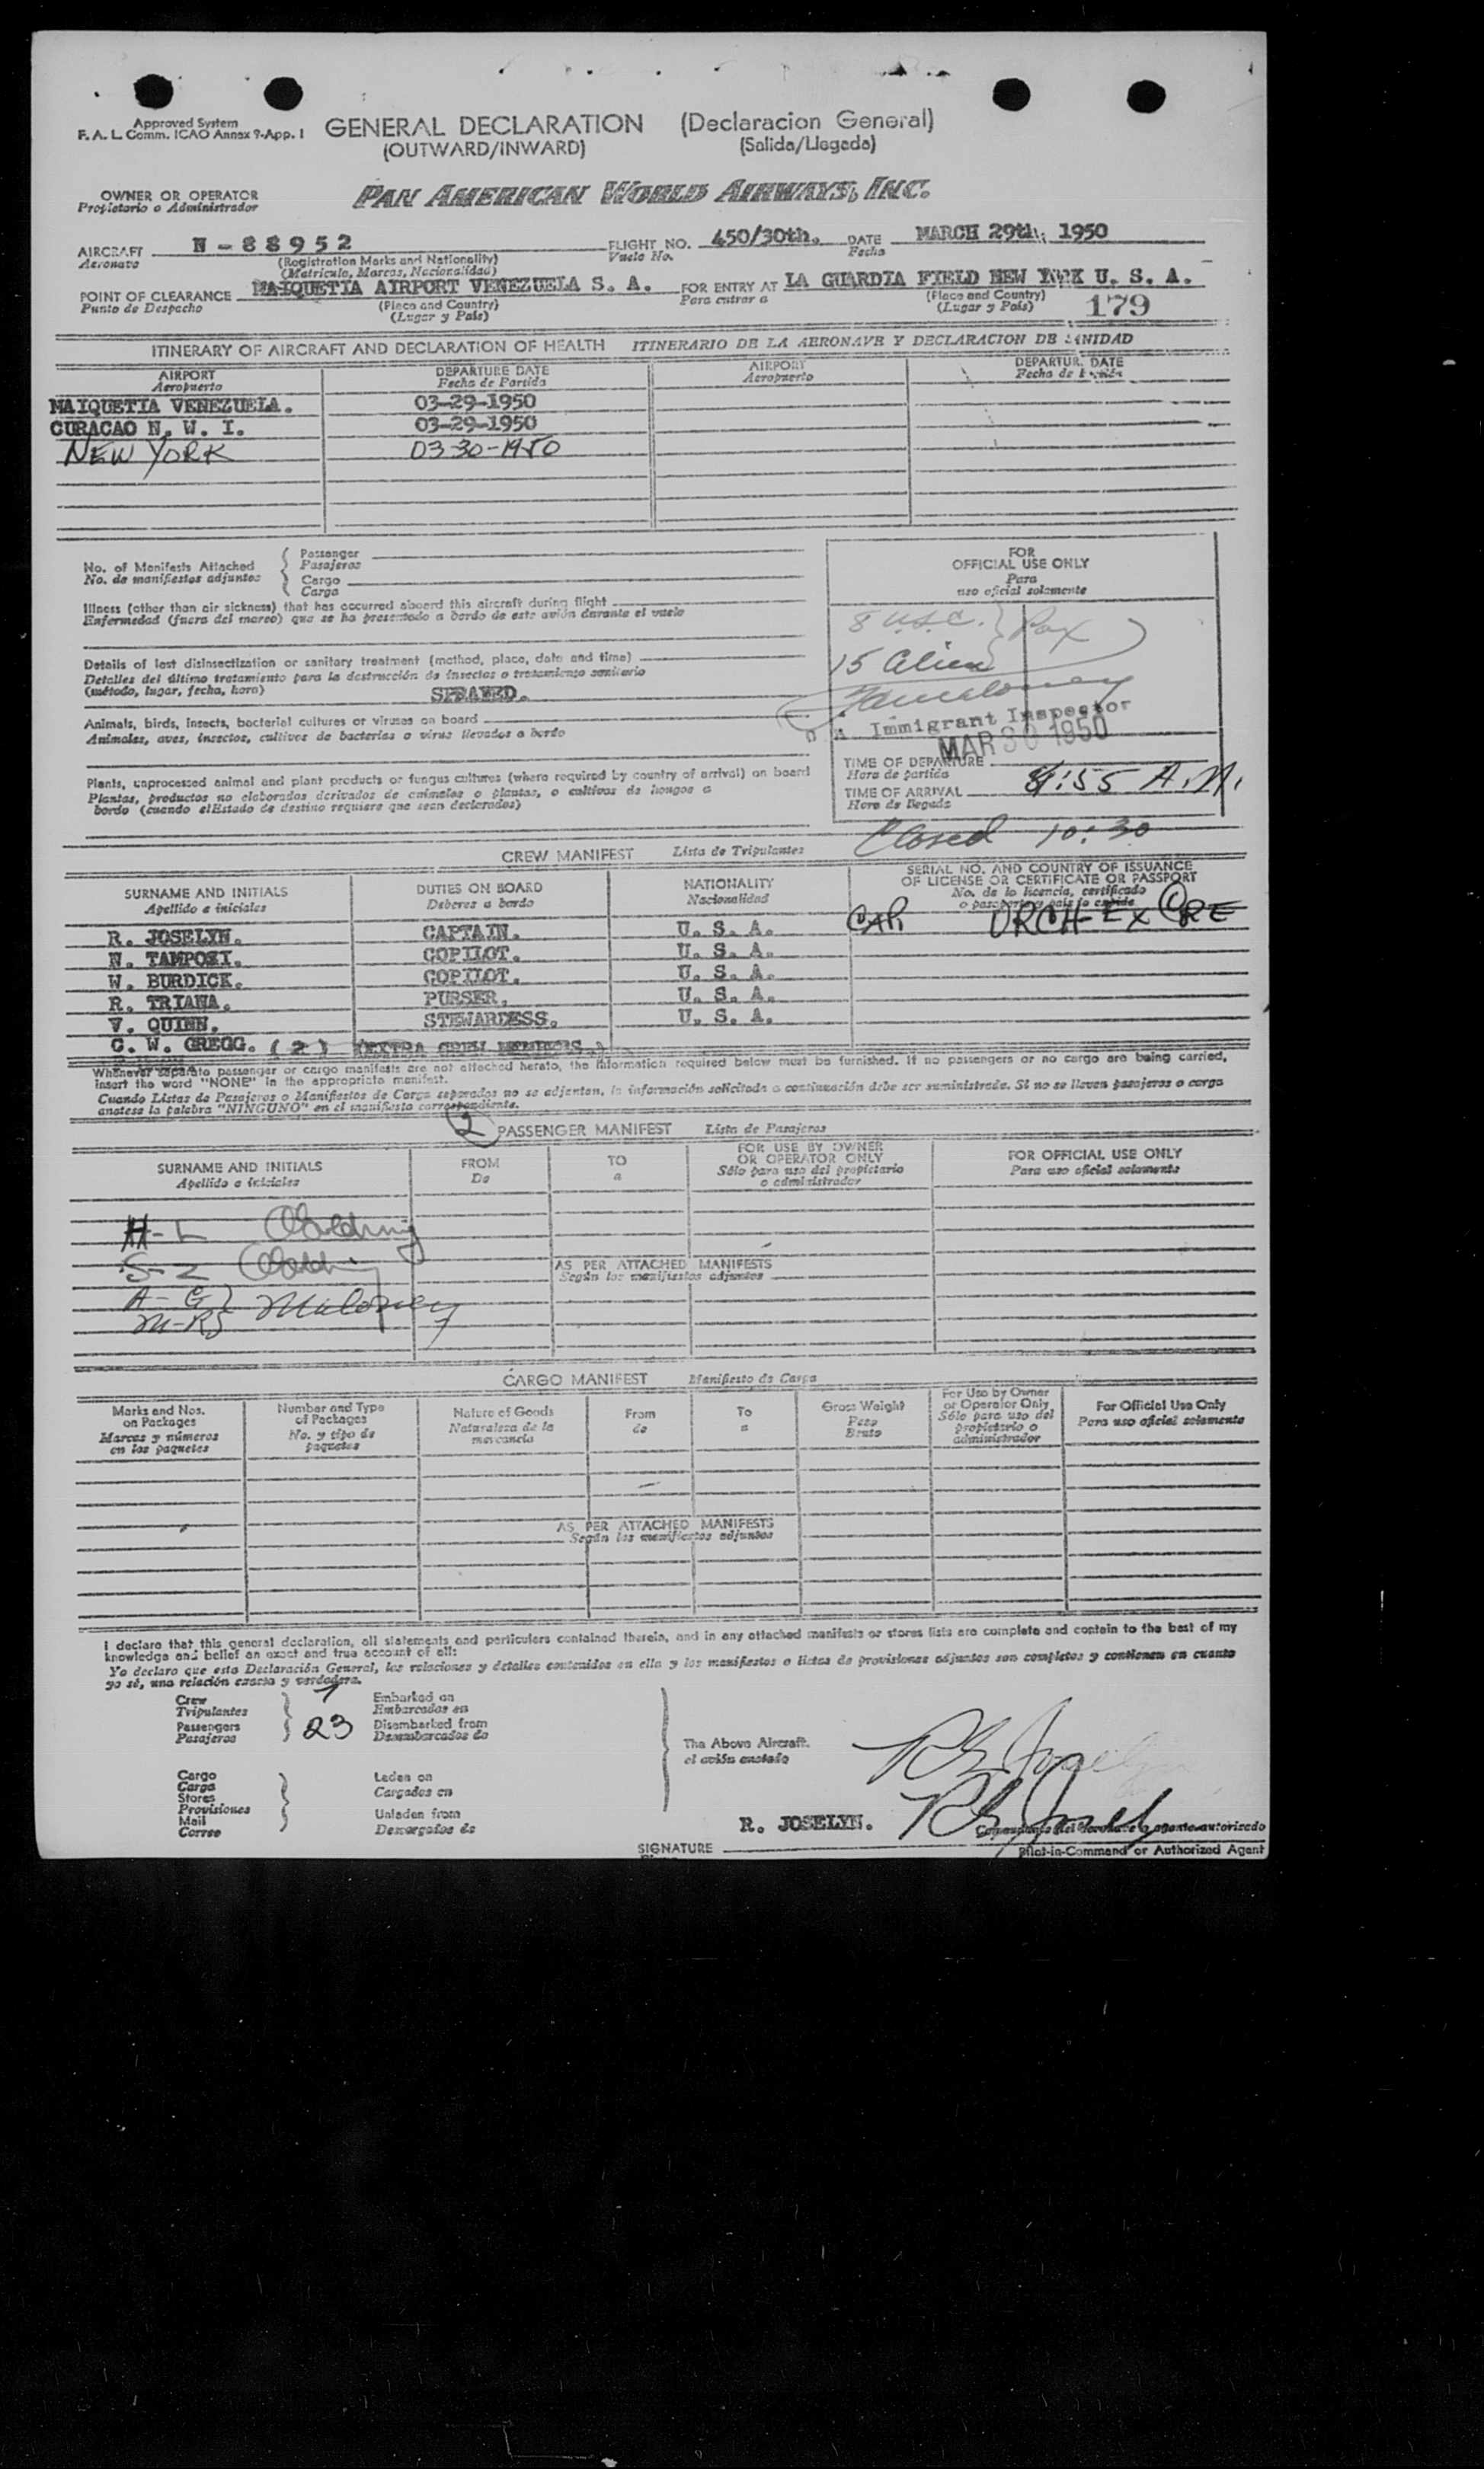 Approved System
F. A. L. Comm. ICAO Annex 9-App. 1
GENERAL DECLARATION (Declaracion General)
(OUTWARD/INWARD) (Salida/Llegada)
OWNER OR OPERATOR
Propietario o Administrador
PAN AMERICAN WORLD AIRWAYS, INC.
AIRCRAFT N-88952 FLIGHT NO. 450/30th. DATE MARCH 29th. 1950
Aeronave (Registration Marks and Nationality) Vuelo No. Fecha
(Matricula, Marcas, Nacionalidad)
POINT OF CLEARANCE MAIQUETIA AIRPORT VENEZUELA S. A. FOR ENTRY AT LA GUARDIA FIELD NEW YORK U. S. A.
Punto de Despacho (Place and Country) Para entrar a (Place and Country)
(Lugar y País) (Lugar y País) 179
ITINERARY OF AIRCRAFT AND DECLARATION OF HEALTH ITINERARIO DE LA AERONAVE Y DECLARACION DE SANIDAD
AIRPORT DEPARTURE DATE AIRPORT DEPARTURE DATE
Aeropuerto Fecha de Partida Aeropuerto Fecha de
MAIQUETIA VENEZUELA. 03-29-1950
CURACAO N. W. I. 03-29-1950
NEW YORK 03-30-1950
No. of Manifests Attached Passenger
No. de manifiestos adjuntos Pasajeros
Cargo
Carga
Illness (other than air sickness) that has occurred aboard this aircraft during flight
Enfermedad (fuera del mareo) que se ha presentado a bordo de este avión durante el vuelo
Details of last disinsectization or sanitary treatment (method, place, date and time)
Detalles del último tratamiento para la destrucción de insectos o tratamiento sanitario
(método, lugar, fecha, hora) SPRAYED.
Animals, birds, insects, bacterial cultures or viruses on board
Animales, aves, insectos, cultivos de bacterias o virus llevados a bordo
Plants, unprocessed animal and plant products or fungus cultures (where required by country of arrival) on board
Plantas, productos no elaborados derivados de animales o plantas, o cultivos de hongos a
bordo (cuando el Estado de destino requiere que sean declarados)
FOR
OFFICIAL USE ONLY
Para
uso oficial solamente
8 U.S.C. Pax
15 Alien
Immigrant Inspector
MAR 30 1950
TIME OF DEPARTURE
Hora de partida
TIME OF ARRIVAL 8:55 A.M.
Hora de llegada
Closed 10:30
CREW MANIFEST Lista de Tripulantes
SURNAME AND INITIALS DUTIES ON BOARD NATIONALITY SERIAL NO. AND COUNTRY OF ISSUANCE
OF LICENSE OR CERTIFICATE OR PASSPORT
Apellido e iniciales Deberes a bordo Nacionalidad No. de la licencia, certificado
o pasaporte y país lo expide
R. JOSELYN. CAPTAIN. U. S. A.
N. TAMPOSI. COPILOT. U. S. A.
W. BURDICK. COPILOT. U. S. A.
R. TRIANA. PURSER. U. S. A.
V. QUINN. STEWARDESS. U. S. A.
C. W. GREGG. (2) (EXTRA CREW MEMBERS.)
Whenever separate passenger or cargo manifests are not attached hereto, the information required below must be furnished. If no passengers or no cargo are being carried,
insert the word "NONE" in the appropriate manifest.
Cuando Listas de Pasajeros o Manifiestos de Carga separados no se adjuntan, la información solicitada a continuación debe ser suministrada. Si no se llevan pasajeros o carga
anotese la palabra "NINGUNO" en el manifiesto correspondiente.
2 PASSENGER MANIFEST Lista de Pasajeros
SURNAME AND INITIALS FROM TO FOR USE BY OWNER FOR OFFICIAL USE ONLY
OR OPERATOR ONLY
Apellido e iniciales De a Sólo para uso del propietario Para uso oficial solamente
o administrador
H-L Golding
S-Z Golding
A-G Maloney
M-RS
AS PER ATTACHED MANIFESTS
Según los manifiestos adjuntos
CARGO MANIFEST Manifiesto de Carga
Marks and Nos. Number and Type Nature of Goods From To Gross Weight For Use by Owner For Official Use Only
on Packages of Packages or Operator Only
Marcas y números No. y tipo de Naturaleza de la de a Peso Sólo para uso del Para uso oficial solamente
en los paquetes paquetes mercancia Bruto propietario o
administrador
AS PER ATTACHED MANIFESTS
Según los manifiestos adjuntos
I declare that this general declaration, all statements and particulars contained therein, and in any attached manifests or stores lists are complete and contain to the best of my
knowledge and belief an exact and true account of all:
Yo declaro que esta Declaración General, las relaciones y detalles contenidos en ella y los manifiestos o listas de provisiones adjuntos son completos y contienen en cuanto
yo sé, una relación exacta y verdadera.
Crew 7 Embarked on
Tripulantes Embarcados en
Passengers 23 Disembarked from
Pasajeros Desembarcados de
The Above Aircraft.
el avión anotado
Cargo Laden on
Carga Cargados en
Stores
Provisiones
Mail Unladen from
Correo Descargados de
R. JOSELYN.
SIGNATURE
Pilot-in-Command or Authorized Agent